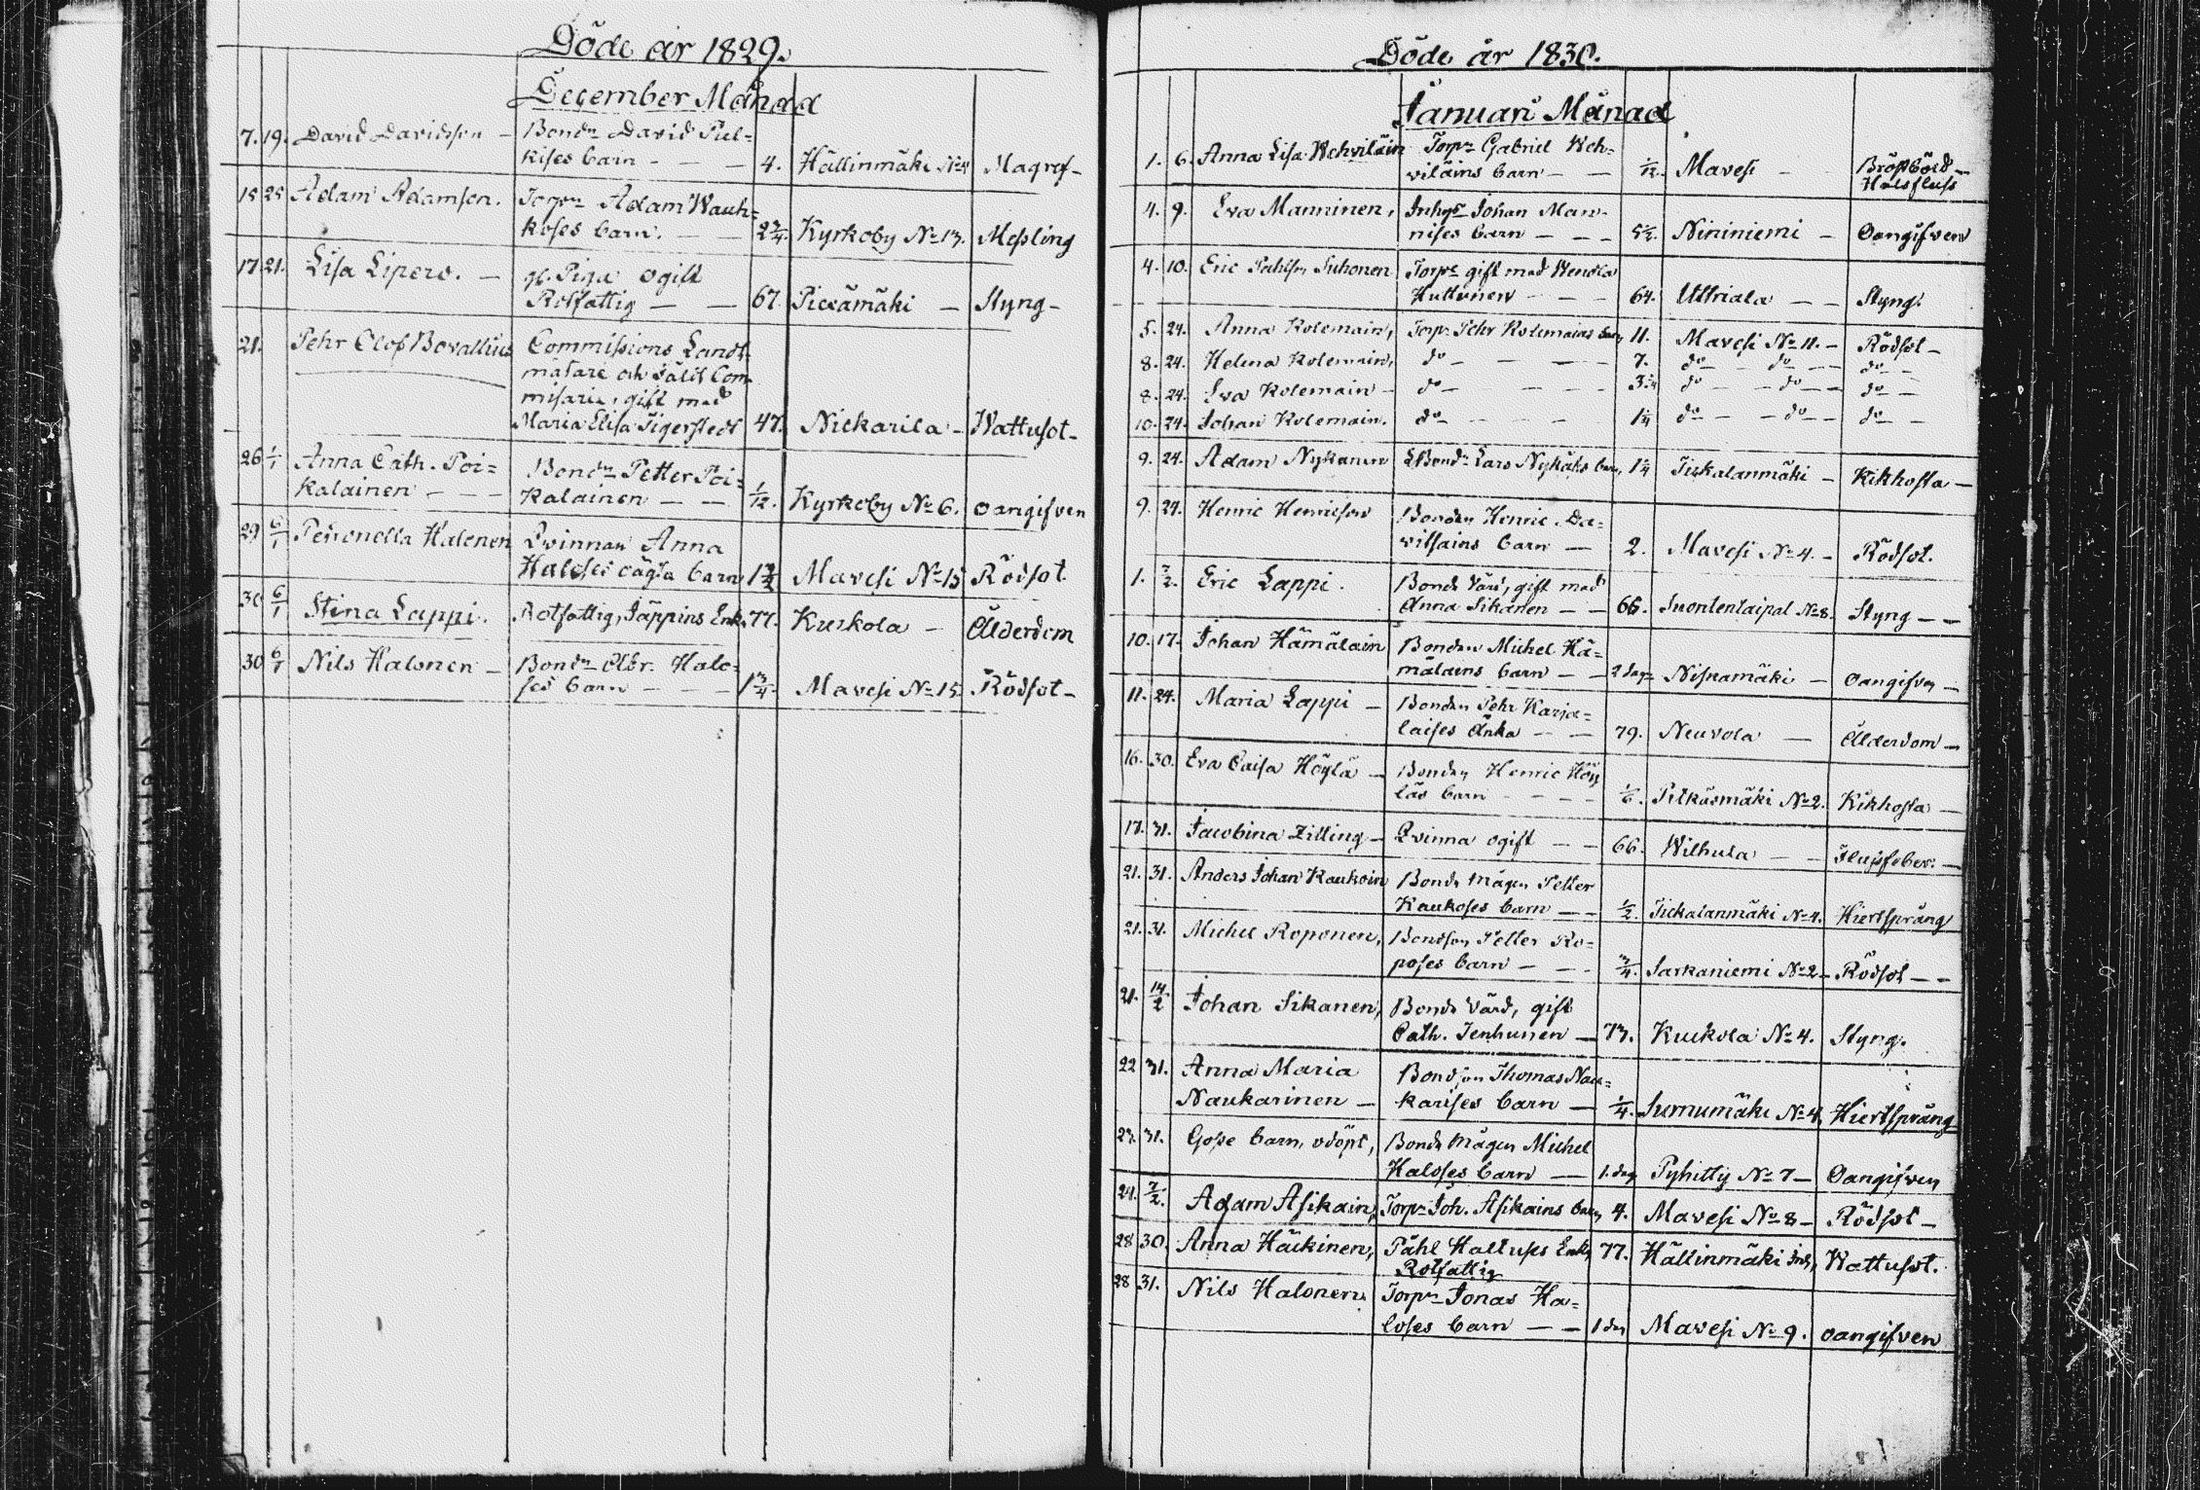 Döde år 1829.
December Månad
7. 19. David Davidsson — Bondn David Pul-
kises barn — — — 4. Hällinmäki No 4 Magref —
15 25 Adam Adamson. Torpn Adam Wauh-
koses barn. — — 2 3/4. Kyrkoby No 13. Messling
17 21. Lisa Lipero. — gl. Piga ogift
Rotfattig — — 67. Piexämäki — Styng —
21. Pehr Olof Bovallius Commissions Landt-
mätare och
misarie, gift med
Maria Elisa Tigerstedt 47. Nickarila — Wattusot —
26 1/1 Anna Cath. Poi= Bondn Petter Poi=
kalainen — — — kalainen — — 1/12. Kyrkoby No 6. oangifven
29 6/1 Petronella Halonen Qvinnan Anna
Haloses oägta barn Mavesi No 15 Rödsot
30 6/1 Stina Lappi. Rotfattig, Jäppins Enka 77. Kuckola — Ålderdom
30 6/1 Nils Halonen — Bondn Abr. Halo=
ses barn — — — 1 3/4. Mavesi No 15 Rödsot —
Döde år 1830.
Januari Månad
1. 6. Anna Lisa Wehviläin Torpn Gabriel Weh-
viläins barn — — 1/12. Mavesi — Bröstböld —
Halsfluss
4. 9. Eva Manninen, Inhys Johan Man-
nises barn — — — 5 1/2. Nininiemi — Oangifven
4. 10. Eric Påhlsn Suhonen Torpr gift med Wendla
Huttunen — — — 64. Uttriala — — Styng.
5. 24. Anna Kolemain, Torpr Pehr Kolemains barn 11. Mavesi No 11. — Rödsot —
8. 24. Helena Kolemain, do — — — 7. do — do — do —
8. 24. Eva Kolemain — do — — — 3 1/4 do — do — do —
10. 24. Johan Kolemain. do — — — 1 1/4 do — do — do —
9. 24. Adam Nykänen Bondn Lars Nykäks barn 1 1/4 Tickalanmäki — Kikhosta —
9. 24. Henric Henricson Bonden Henric Da=
vitsains barn — 2. Mavesi No 4. — Rödsot.
1. 7/2. Eric Lappi. Bonde Värd, gift med
Anna Sikanen — — 66. Suontentaipal No 8. Styng — —
10. 17. Johan Hämäläin Bonden Michel Hä=
mälains barn — — 2 dag. Nisnamäki — oangifven —
11. 24. Maria Lappi — Bonden Pehr Karja=
laises Änka — — 79. Neuvola — Ålderdom —
16. 30. Eva Caisa Höylä — Bonden Henric Höy
läs barn — — — 1/6. Pitkäsmäki No 2. Kikhosta —
17. 31. Jacobina Zitting — Qvinna ogift — — 66. Wilhula — —
21. 31. Anders Johan Kaukoin Bonde mågen Petter
Kaukoses barn — — 1/2. Tickalanmäki No 4. Hiertsprång
21. 31. Michel Roponen, Bondson Petter Ro=
poses barn — — 3/4. Sarkaniemi No 2 — Rödsot — —
21. 14/2 Johan Sikanen, Bonde Värd, gift
Cath. Ienhunen — 73. Kuckola No 4. Styng.
22 31. Anna Maria Bondson Thomas Nau=
Naukarinen — karises barn — 1/4. Surnumäki No 4 Hiertsprång
23. 31. Gosse barn, odöpt, Bonde mågen Michel
Haloses barn — 1. dag Pyhitty No 7 — Oangifven
24. 7/2. Adam Asikain, Torpr Joh. Asikains barn 4. Mavesi No 8 — Rödsot —
28 30. Anna Häkinen, Påhl Enka 77. Hällinmäki Inh, Wattusot.
Rotfattig
28 31. Nils Halonen Torpn Jonas Ha=
loses barn — — 1 dag Mavesi No 9. oangifven